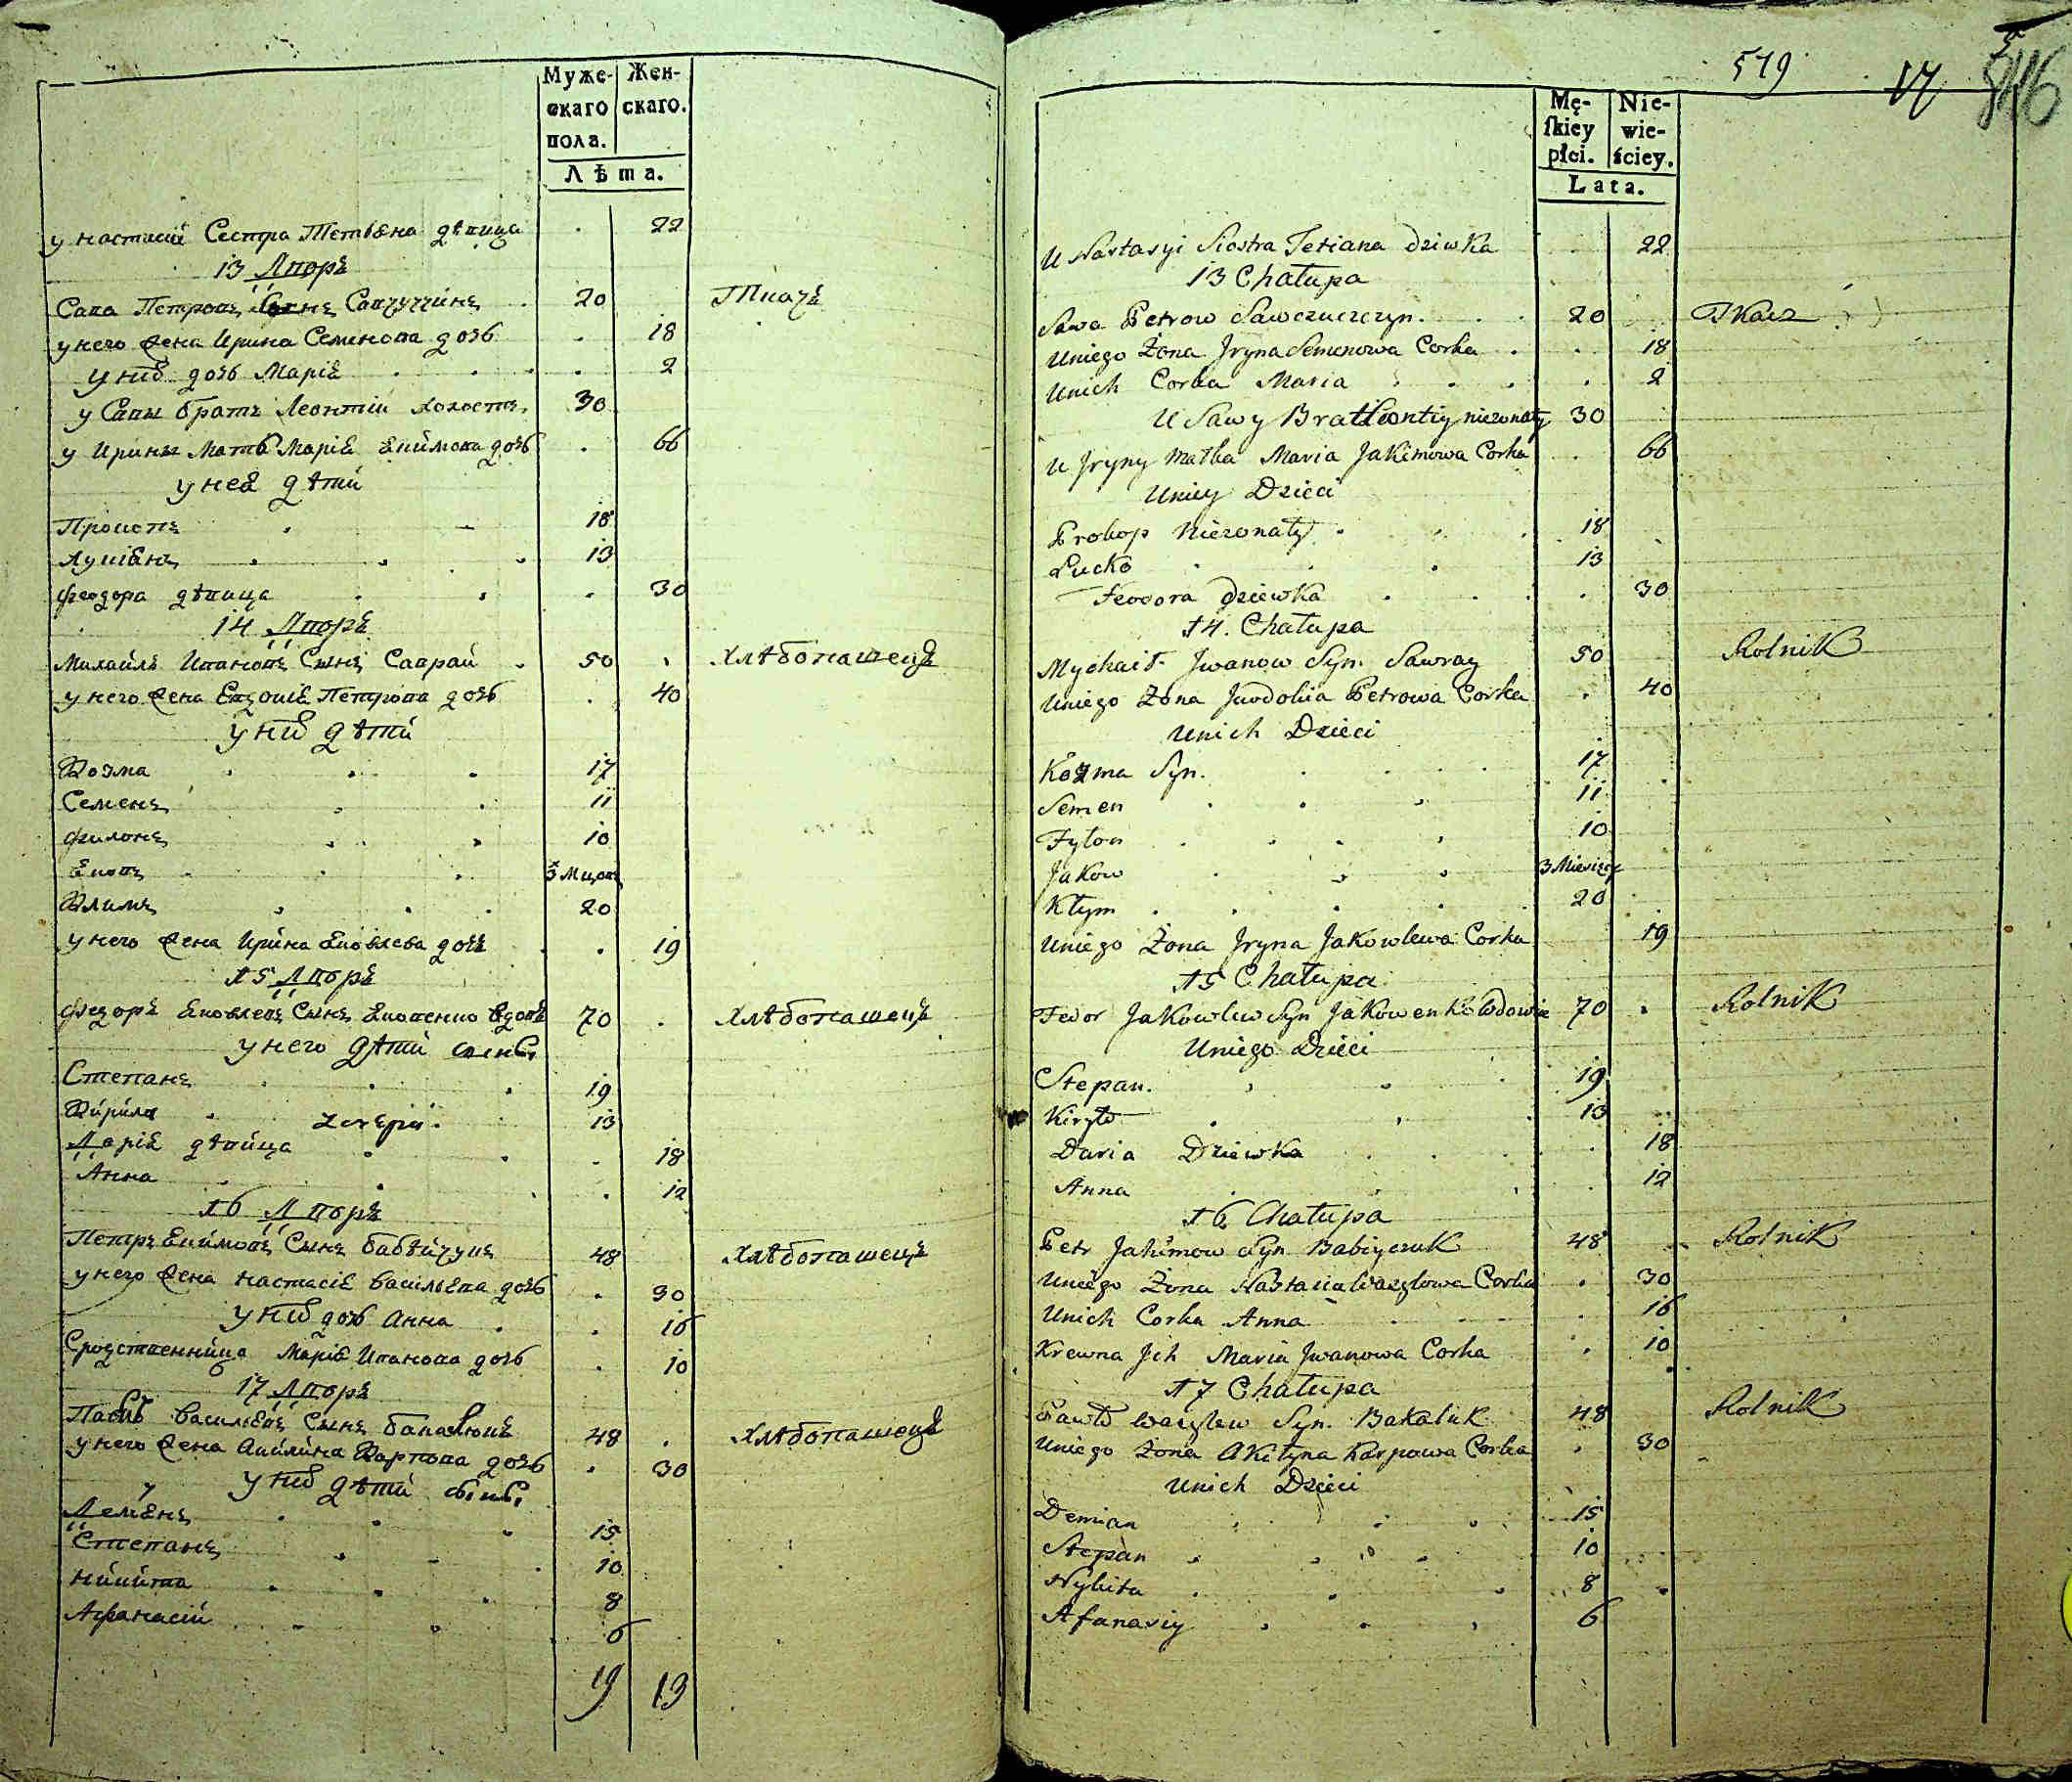 Муже-
скаго
пола.
Жен-
скаго.
Лѣта.
у настасіи Сестра Тетьяна дѣвица . 22
13 Дворъ
Сава Петровъ Сынъ Савчучинъ . 20 Ткачъ
у него жена Ирина Семенова дочь . 18
у них дочь Марія . . . . 2
у Савы братъ Леонтій холостъ. 30
у Ирины Мать Марія Якимова дочь . 66
у нея дѣти
Прокопъ . 18
Лукіянъ . . . 13
Феодора дѣвица . . . 30
14 Дворъ
Михайлъ Ивановъ Сынъ Саврай . 50 . Хлѣбопашецъ
у него жена Евдокія Петрова дочь . 40
у них дѣти
Козма . . . 17
Семенъ . . 11
Филонъ . . 10
Яковъ . . . 3 Мцовъ
Климъ . . . 20
у него жена Ирина Яковлева дочь . . 19
15 Дворъ
Федоръ Яковлевъ Сынъ Яковенко вдовъ 70 . Хлѣбопашецъ
у него дѣти
Степанъ . . . 19
Кирило . 13
Дарія дѣвица . . . 18
Анна . . . . 12
16 Дворъ
Петръ Якимовъ Сынъ Бабѣйчукъ 48 Хлѣбопашецъ
у него жена настасія Васильева дочь . 30
у них дочь Анна . . 16
Сродственница Марія Иванова дочь . 10
17 Дворъ
Павлъ Васильевъ Сынъ Бакалюкъ 48 . Хлѣбопашецъ
у него жена Акилина Карпова дочь . 30
у них дѣти
Демянъ . . . 15
Степанъ . . . 10
Никита . . . 8
Афанасій . . . 6
19 13
579
Mę-
ſkiey
płci.
Nie-
wie-
ściey.
Lata.
U Nastasyi Siostra Tetiana Dziwka . 22
13 Chałupa
Sawa Petrow Sawczuczczyn. . . 20 Tkacz
Uniego Żona Jryna Semenowa Corka . . 18
Unich Corka Maria . . . . 2
U Sawy Brat Leontiy niezonaty 30
U Jryny Matka Maria Jakimowa Corka . 66
Uniey Dzieci
Prokop Niezonaty . . . 18
Łucko . . . 13
Feodora Dziewka . . . . 30
14. Chałupa
Mychaił Jwanow Syn. Sawray 50 Rolnik
Uniego Żona Jwdokia Petrowa Corka . 40
Unich Dzieci
Kozma Syn. . . . 17
Semen . . . 11
Fyłon . . . . 10
Jakow . . . 3 Miesięcy
Kłym . . . . . 20
Uniego Żona Jryna Jakowlewa Corka 19
15 Chałupa
Fedor Jakowlew Syn Jakowenko Wdowiec 70 . Rolnik
Uniego Dzieci
Stepan. . . 19
Kiryło . . . 13
Daria Dziewka . . . . 18
Anna . . . . 12
16 Chałupa
Petr Jakimow Syn Babiyczuk 48 Rolnik
Uniego Żona Nastasia Wasylowa Corka . 30
Unich Corka Anna . . . . 16
Krewna Jch Maria Jwanowa Corka . 10
17 Chałupa
Pawło Wasylew Syn. Bakaluk 48 Rolnik
Uniego Żona Akilyna Karpowa Corka . 30
Unich Dzieci
Demian . . . 15
Stepan . . . . 10
Nykita . . . 8 .
Afanasiy . . . 6